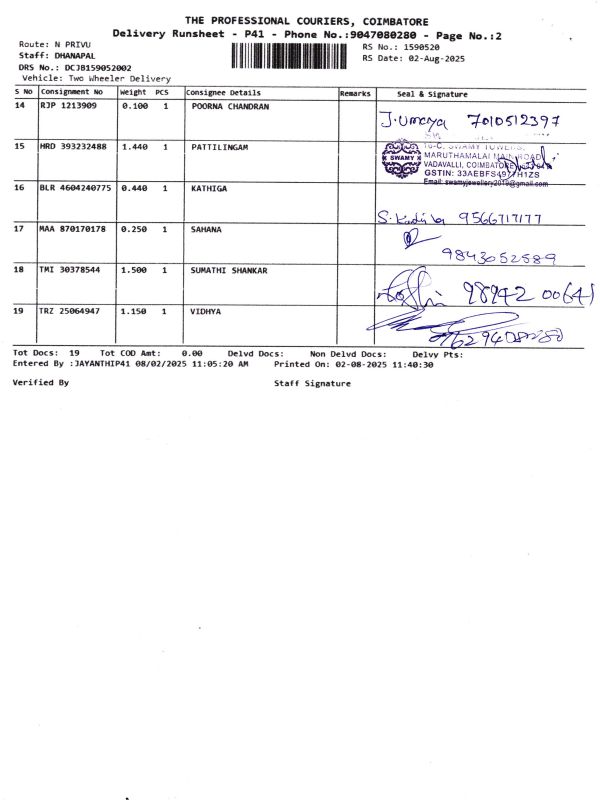 THE PROFESSIONAL COURIERS, COIMBATORE
Delivery Runsheet - P41 - Phone No.:9047080280 - Page No.:2
Route: N PRIVU RS No.: 1590520
Staff: DHANAPAL RS Date: 02-Aug-2025
DRS No.: DCJB159052002
Vehicle: Two Wheeler Delivery
S No Consignment No Weight PCS Consignee Details Remarks Seal & Signature
14 RJP 1213909 0.100 1 POORNA CHANDRAN
J. Umaya 7010512397
15 HRD 393232488 1.440 1 PATTILINGAM
16-C, SWAMY TOWERS,
SWAMY MARUTHAMALAI MAIN ROAD
VADAVALLI, COIMBATORE
GSTIN: 33AEBFS4977H1ZS
Email: swamyjewellery2019@gmail.com
16 BLR 4604240775 0.440 1 KATHIGA
S. 9566717177
17 MAA 870170178 0.250 1 SAHANA
9843052589
18 TMI 30378544 1.500 1 SUMATHI SHANKAR
98942 00641
19 TRZ 25064947 1.150 1 VIDHYA
Tot Docs: 19 Tot COD Amt: 0.00 Delvd Docs: Non Delvd Docs: Delvy Pts:
Entered By :JAYANTHIP41 08/02/2025 11:05:20 AM Printed On: 02-08-2025 11:40:30
Verified By Staff Signature